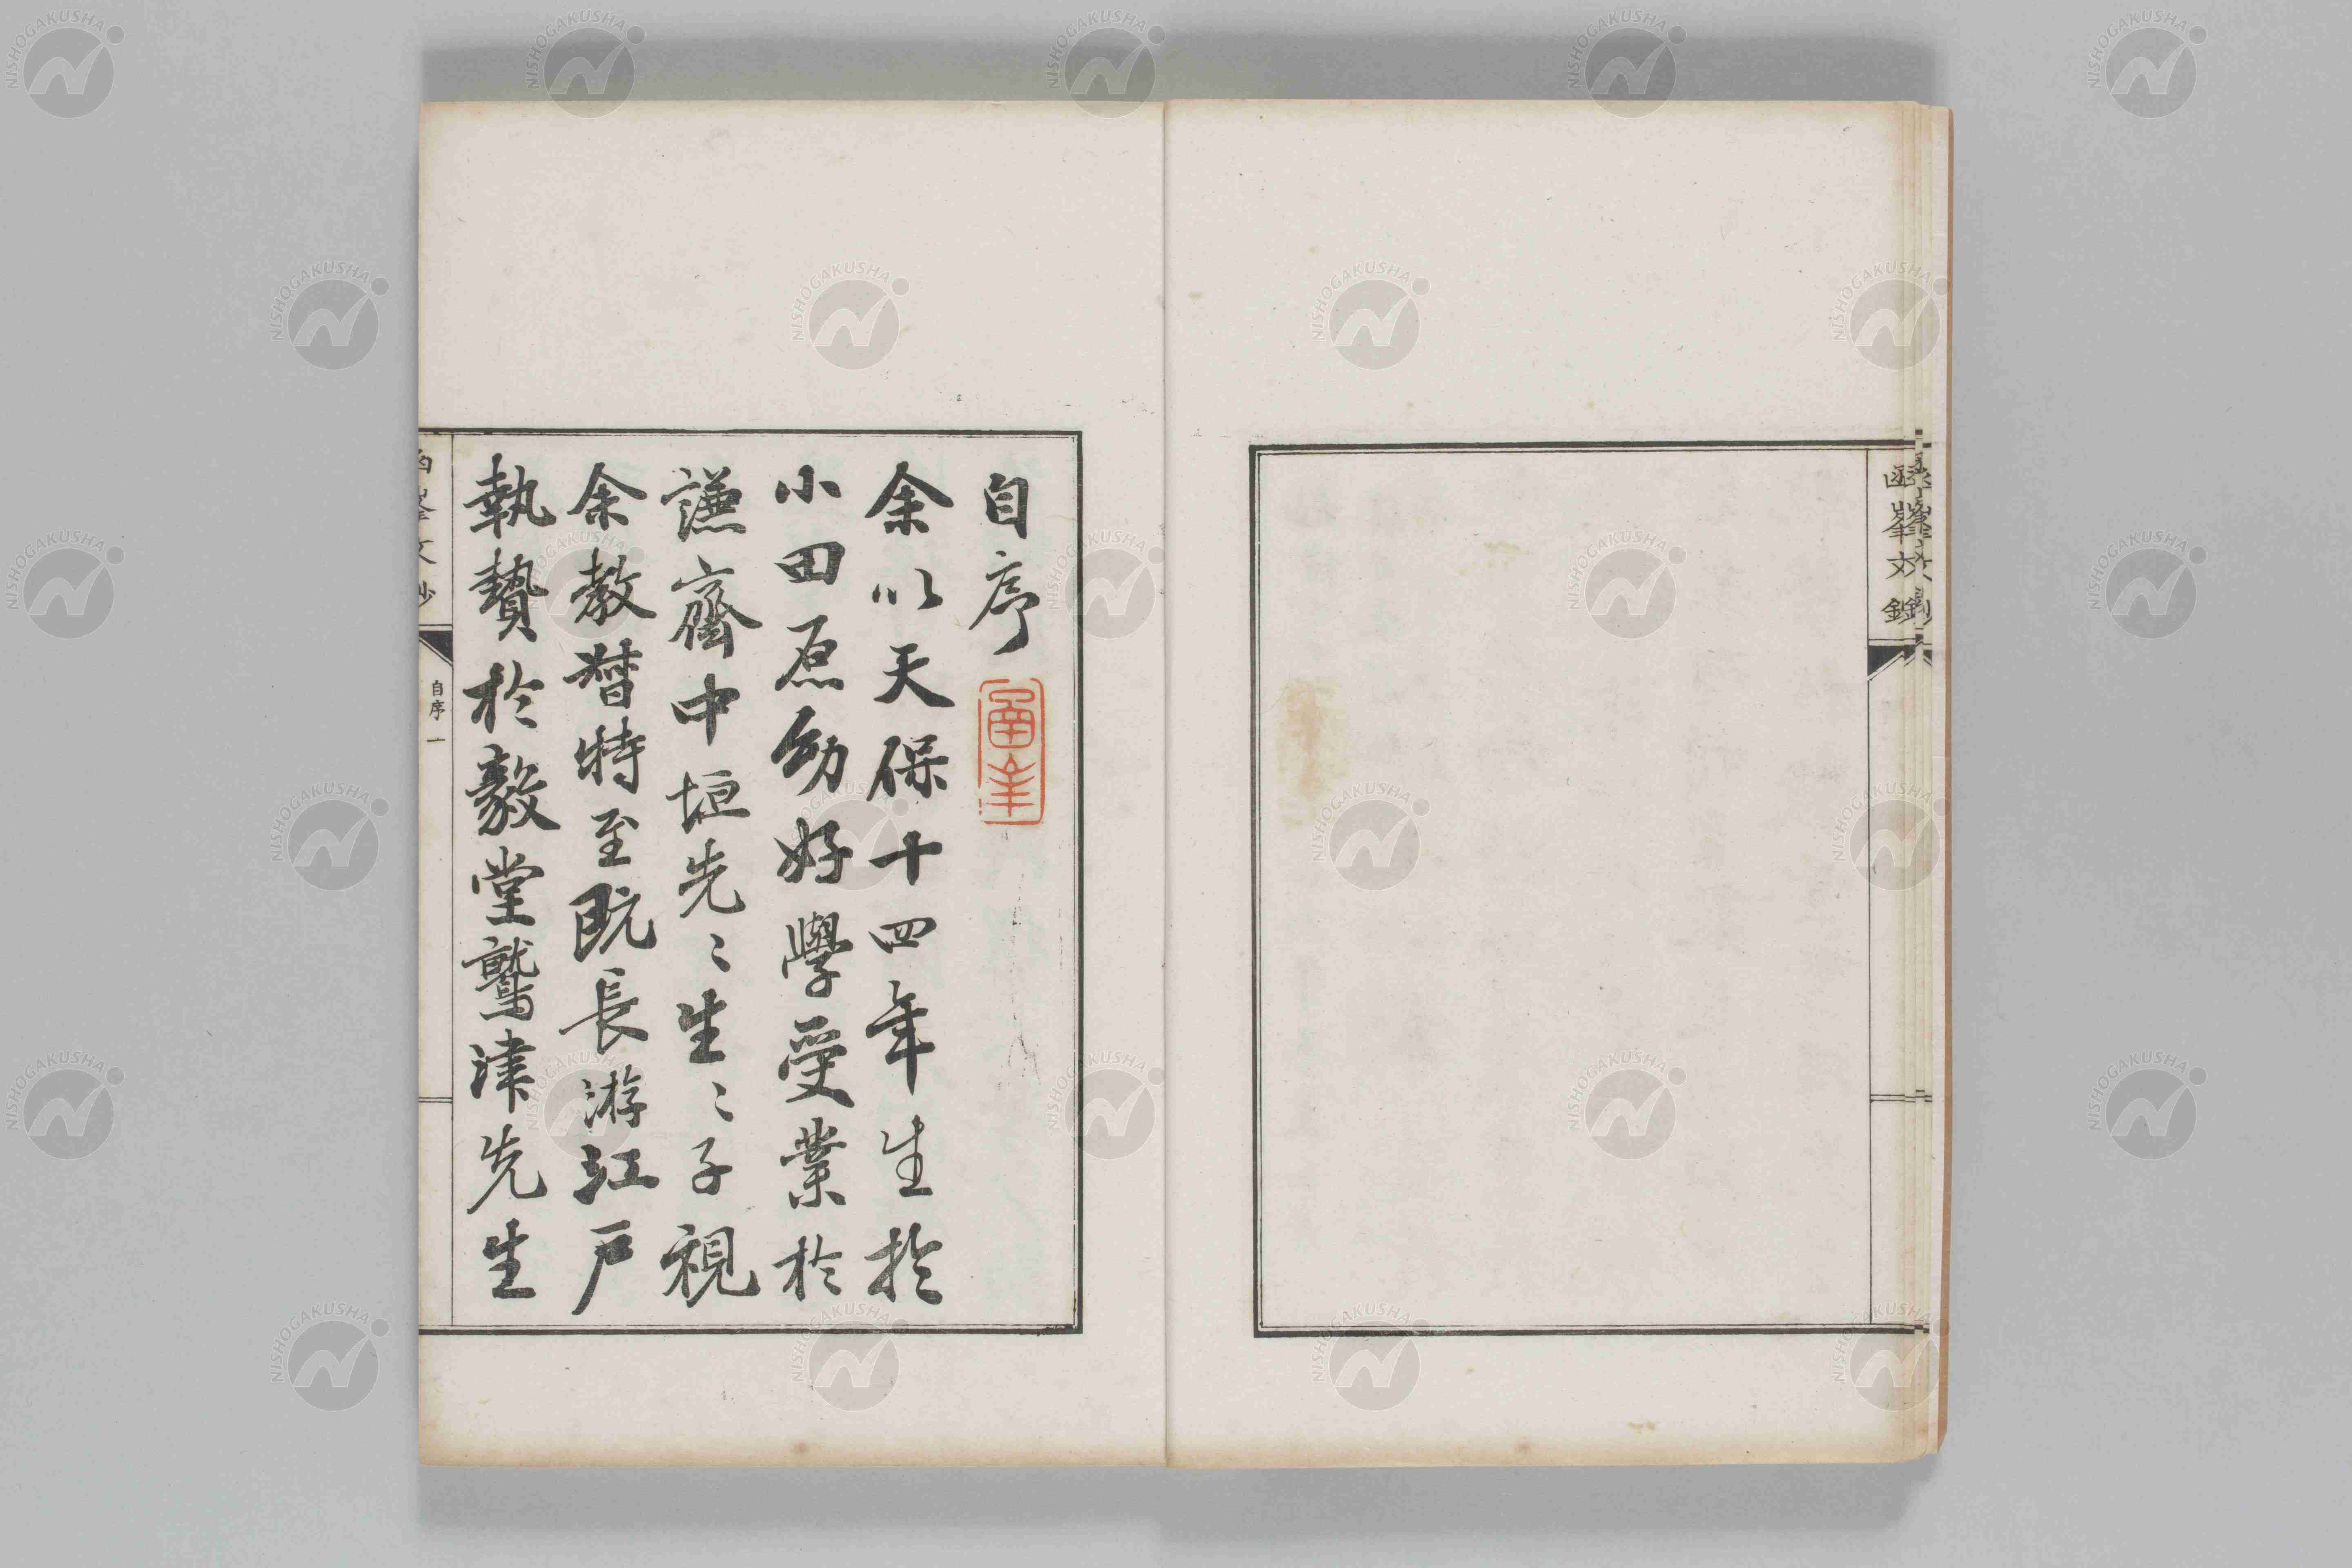 自序
余以天保十四年生於
小田原幼好學受業於
謙齋中垣先〻生〻子視
余教督特至既長游江戸
執贄於毅堂鷲津先生
自序 一
函峯文鈔
NISHOGAKUSHA